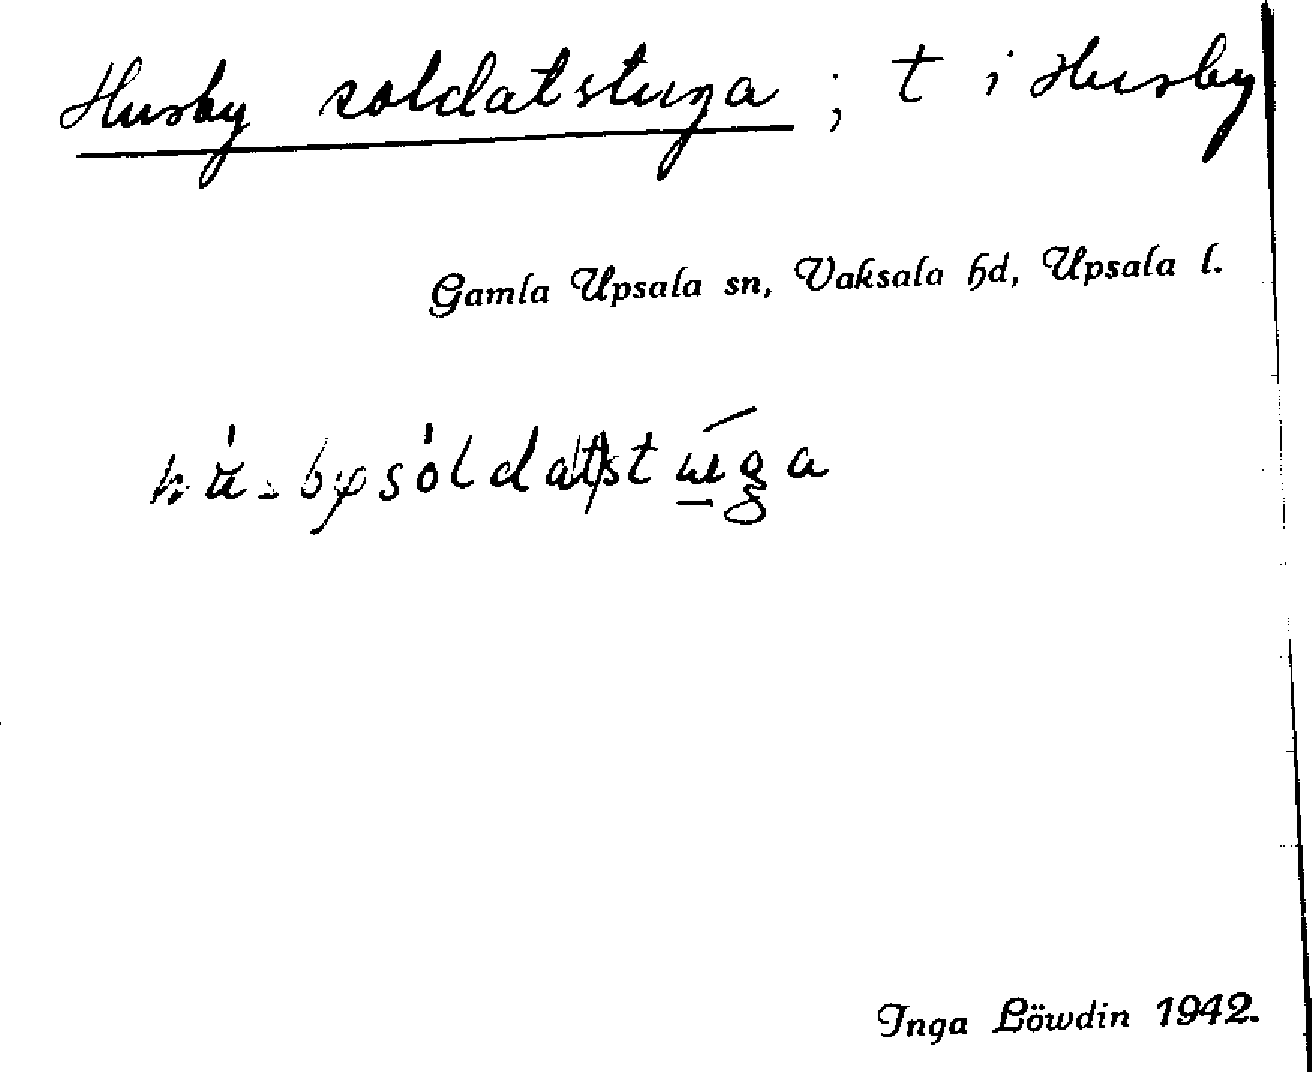 Husby soldatstuga ; t i Husby
Gamla Upsala sn, Vaksala hd, Upsala l.
Inga Löwdin 1942.